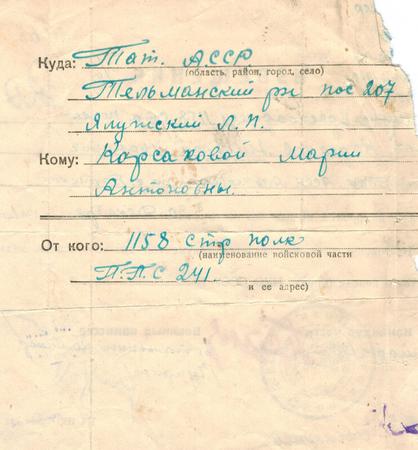 Куда: Тат. АССР
(область, район, город, село)
Тельманский р-н пос 207
Ялутский Л.П.
Кому: Корсаковой Марии
Антоновны.
От кого: 1158 стр полк
(наименование войсковой части
П.П.С 241.
и ее адрес)